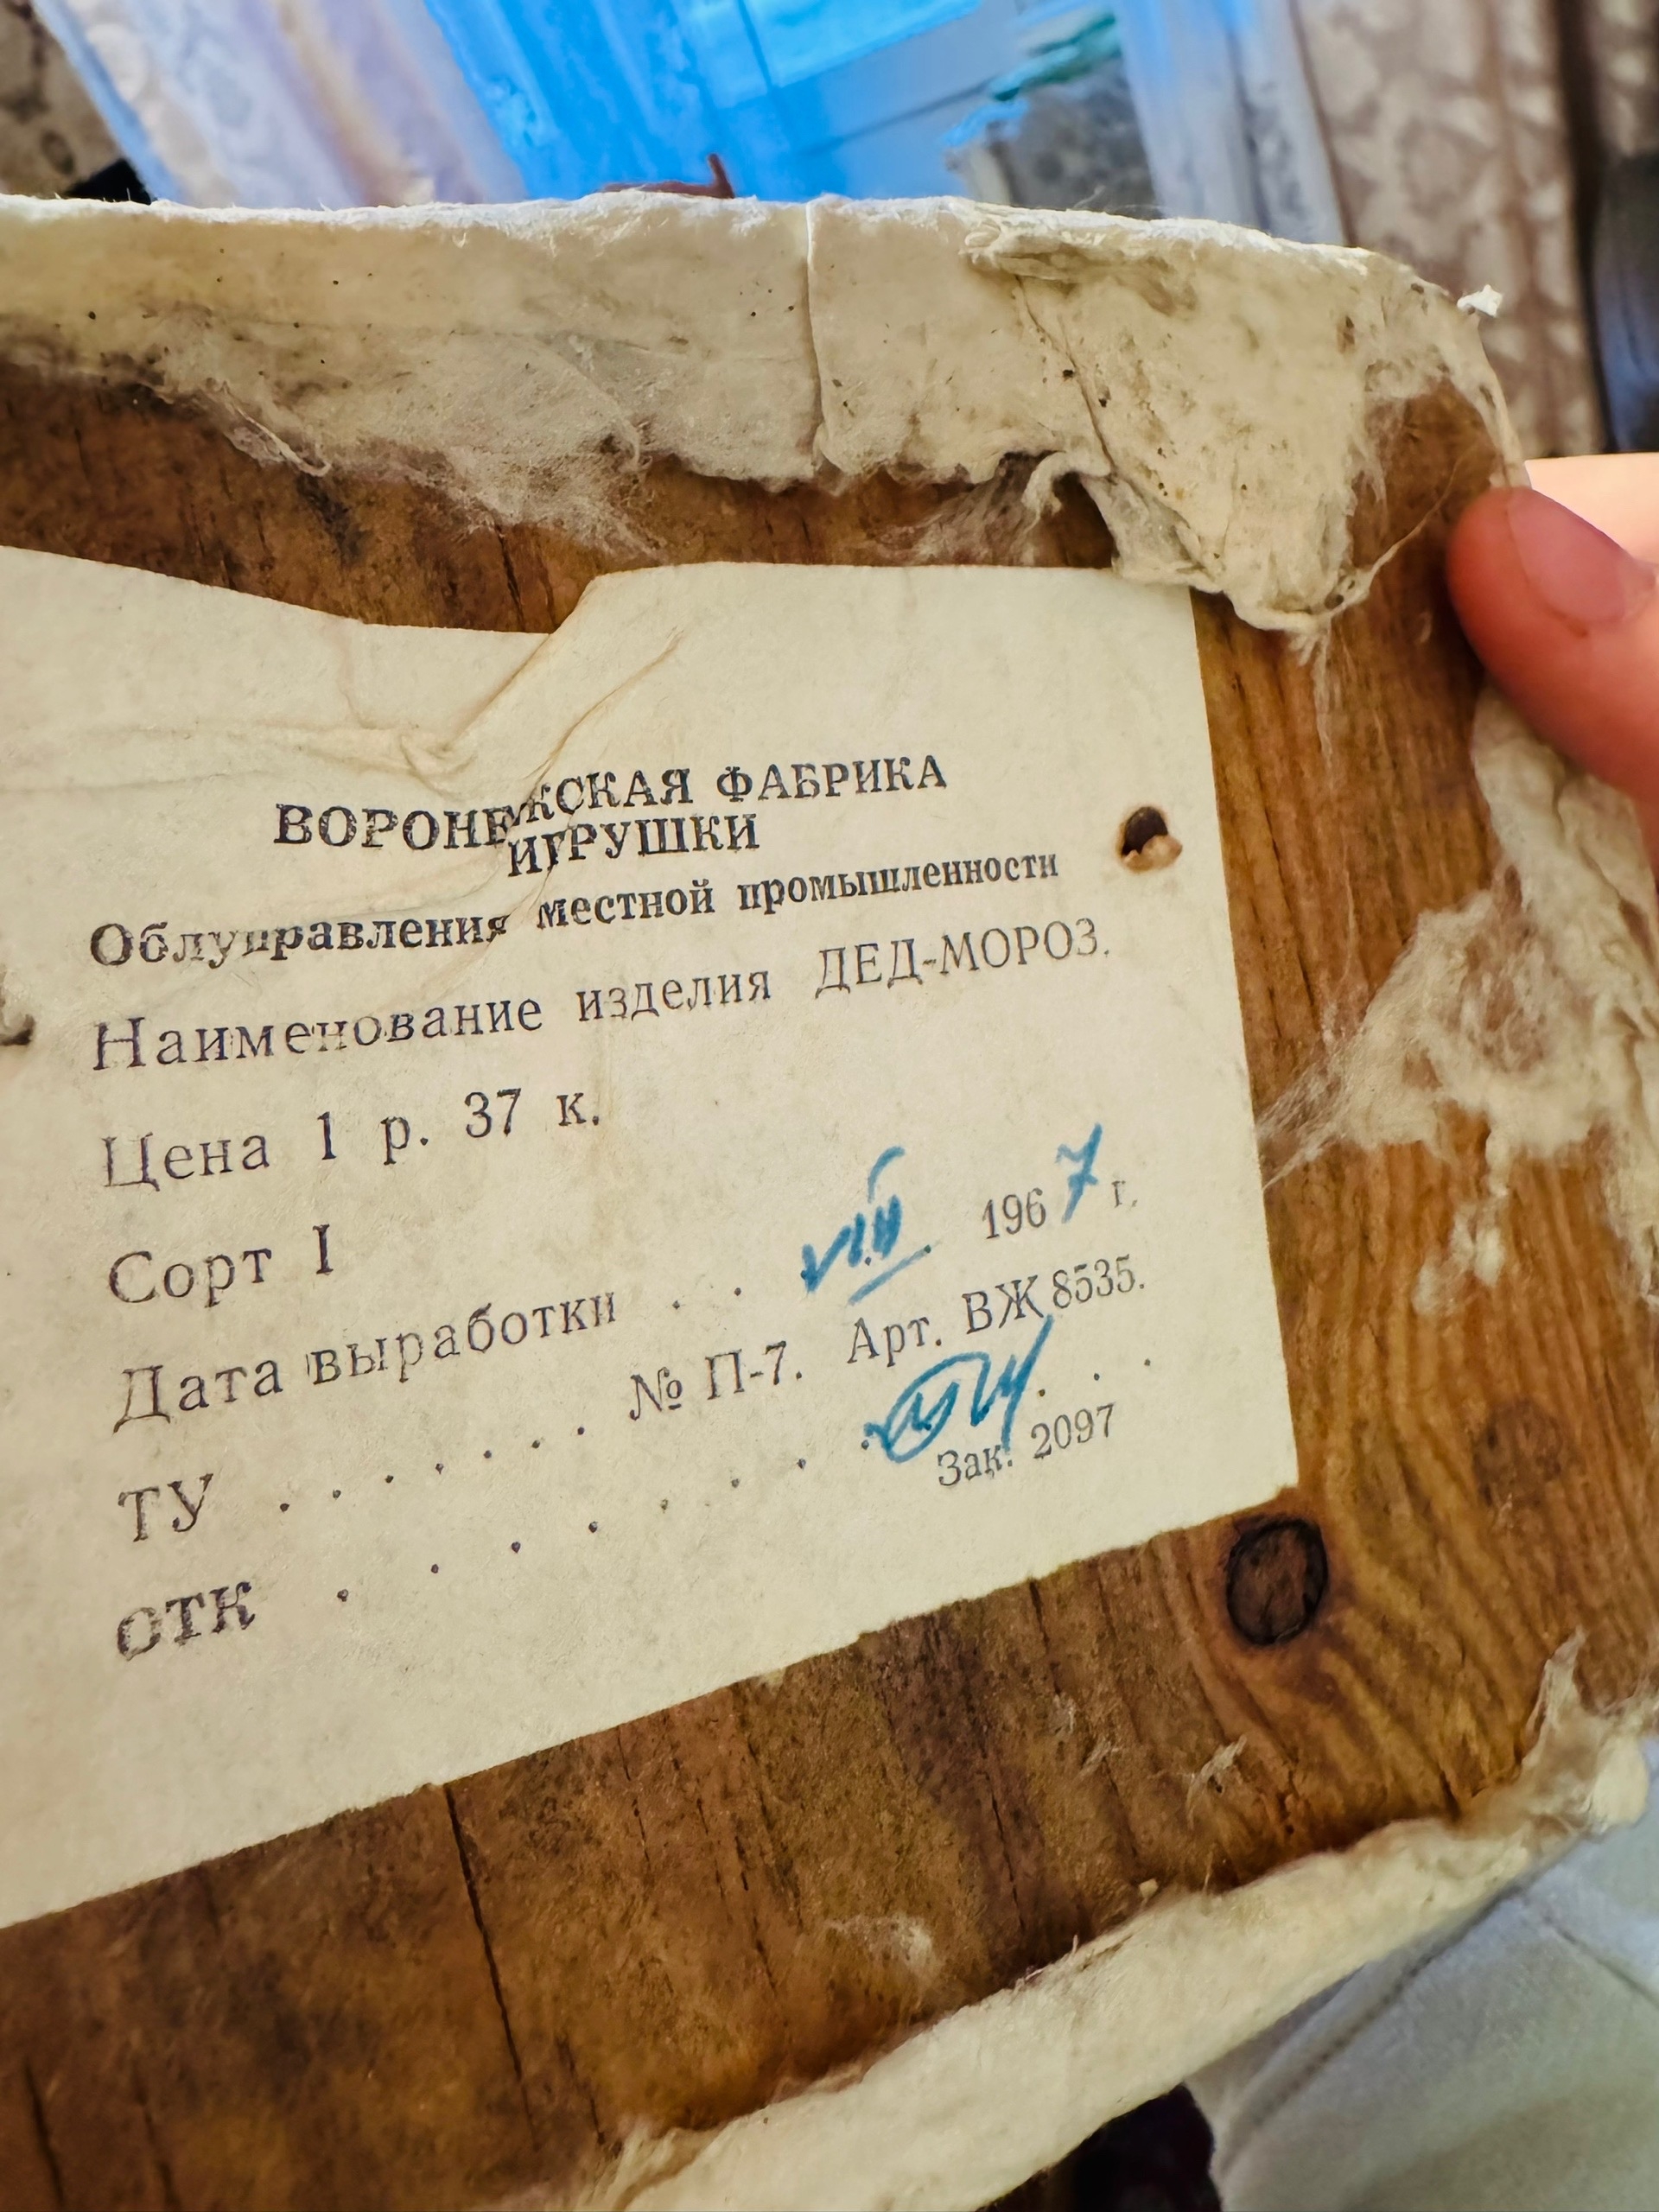 ВОРОНЕЖСКАЯ ФАБРИКА
ИГРУШКИ
Облуправления местной промышленности
Наименование изделия ДЕД-МОРОЗ.
Цена 1 р. 37 к.
Сорт I
Дата выработки . . VIII . 1967 г.
ТУ . . . . . . . № П-7. Арт. ВЖ 8535.
ОТК . . . . . . . . . . .
Зак. 2097